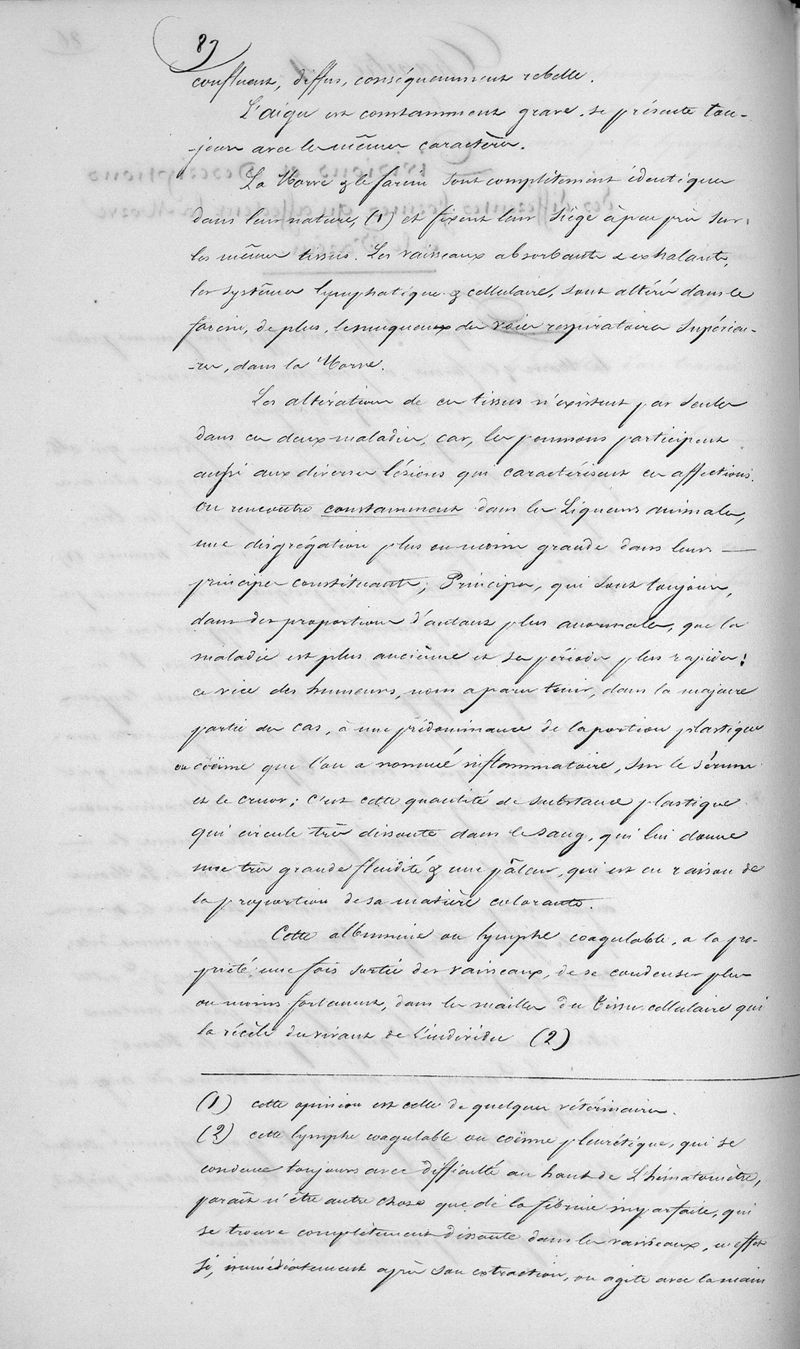 87
confluent, diffus, conséquemment rebelle.
L'aigu est constamment grave, se présente tou-
-jours avec les mêmes caractères.
La Morve & le farcin sont complètement identiques
dans leur nature, (1) et fixent leur siège à peu près sur
les mêmes tissus. Les vaisseaux absorbants & exhalants,
les systèmes lymphatique & cellulaire, sont altérés dans le
farcin, de plus, les muqueuses des voies respiratoires supérieu-
-res, dans la Morve.
Les altérations de ces tissus n'existent pas seules
dans ces deux maladies, car, les poumons participent
aussi aux diverses lésions qui caractérisent ces affections.
On rencontre constamment dans les Liqueurs animales,
une disgrégation plus ou moins grande dans leurs
principes constituants; Principes, qui sont toujours,
dans des proportions d'autant plus anormales, que la
maladie est plus ancienne et ses périodes plus rapides:
ce vice des humeurs, nous a paru tenir, dans la majeure
partie des cas, à une prédominance de la portion plastique
ou coënne que l'on a nommée inflammatoire, sur le sérum
et le cruor; c'est cette quantité de substance plastique
qui circule très dissoute dans le sang, qui lui donne
une très grande fluidité & une pâleur, qui est en raison de
la proportion de sa matière colorante.
Cette albumine ou lymphe coagulable, a la pro-
priété une fois sortie des vaisseaux, de se condenser plus
ou moins fortement, dans les mailles du tissu cellulaire qui
la récèle du vivant de l'individu (2)
(1) cette opinion est celle de quelques vétérinaires.
(2) cette lymphe coagulable ou coënne pleurétique, qui se
condense toujours avec difficulté au haut de l'hématomètre,
paraît n'être autre chose que de la fibrine imparfaite, qui
se trouve complètement dissoute dans les vaisseaux, en effet
si, immédiatement après son extraction, on agite avec la main